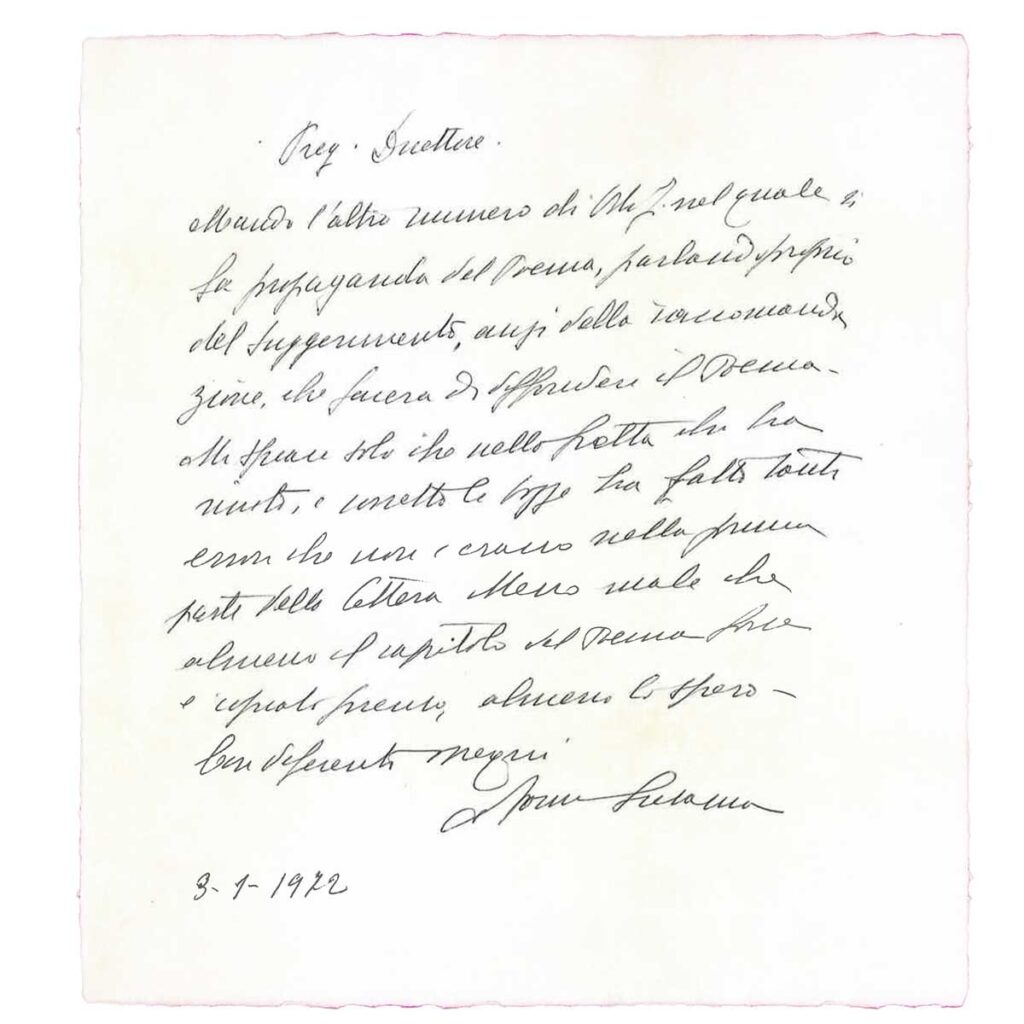 Preg. Direttore.
Mando l'altro numero di nel quale si
fa propaganda del Poema, parlando proprio
del suggerimento, anzi della raccomanda
zione, che faceva di diffondere il Poema-
Mi spiace solo che nella fretta che ha
avuto, e corretto le bozze ha fatto tanti
errori che non c'erano nella prima
parte della lettera Meno male che
almeno il capitolo del Poema
è copiato almeno lo spero-
Con deferenti ossequi
3-1-1972